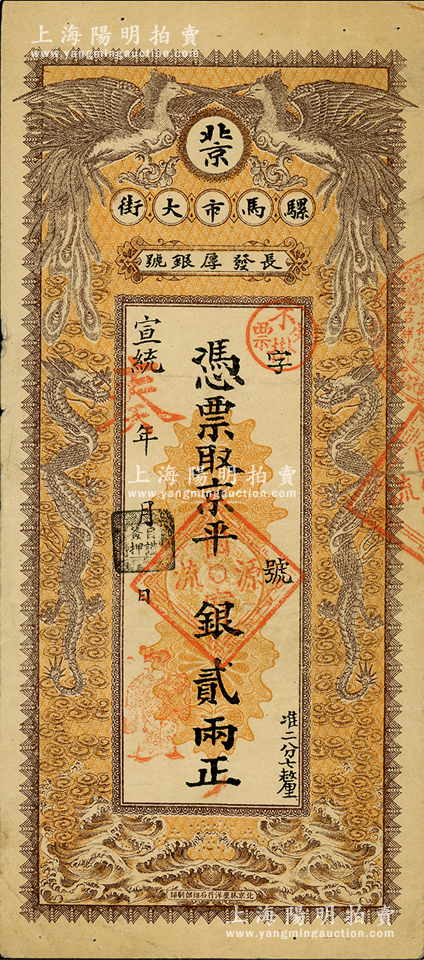 上海陽明拍賣
www.yangmingauction.com
北京
騾馬市大街
長發厚銀號
字
號
憑票取京平 銀貳兩正
準二分七釐
宣統 年 月 日
上海陽明拍賣
www.yangmingauction.com
源
流
票
上海陽明拍賣
www.yangmingauction.com